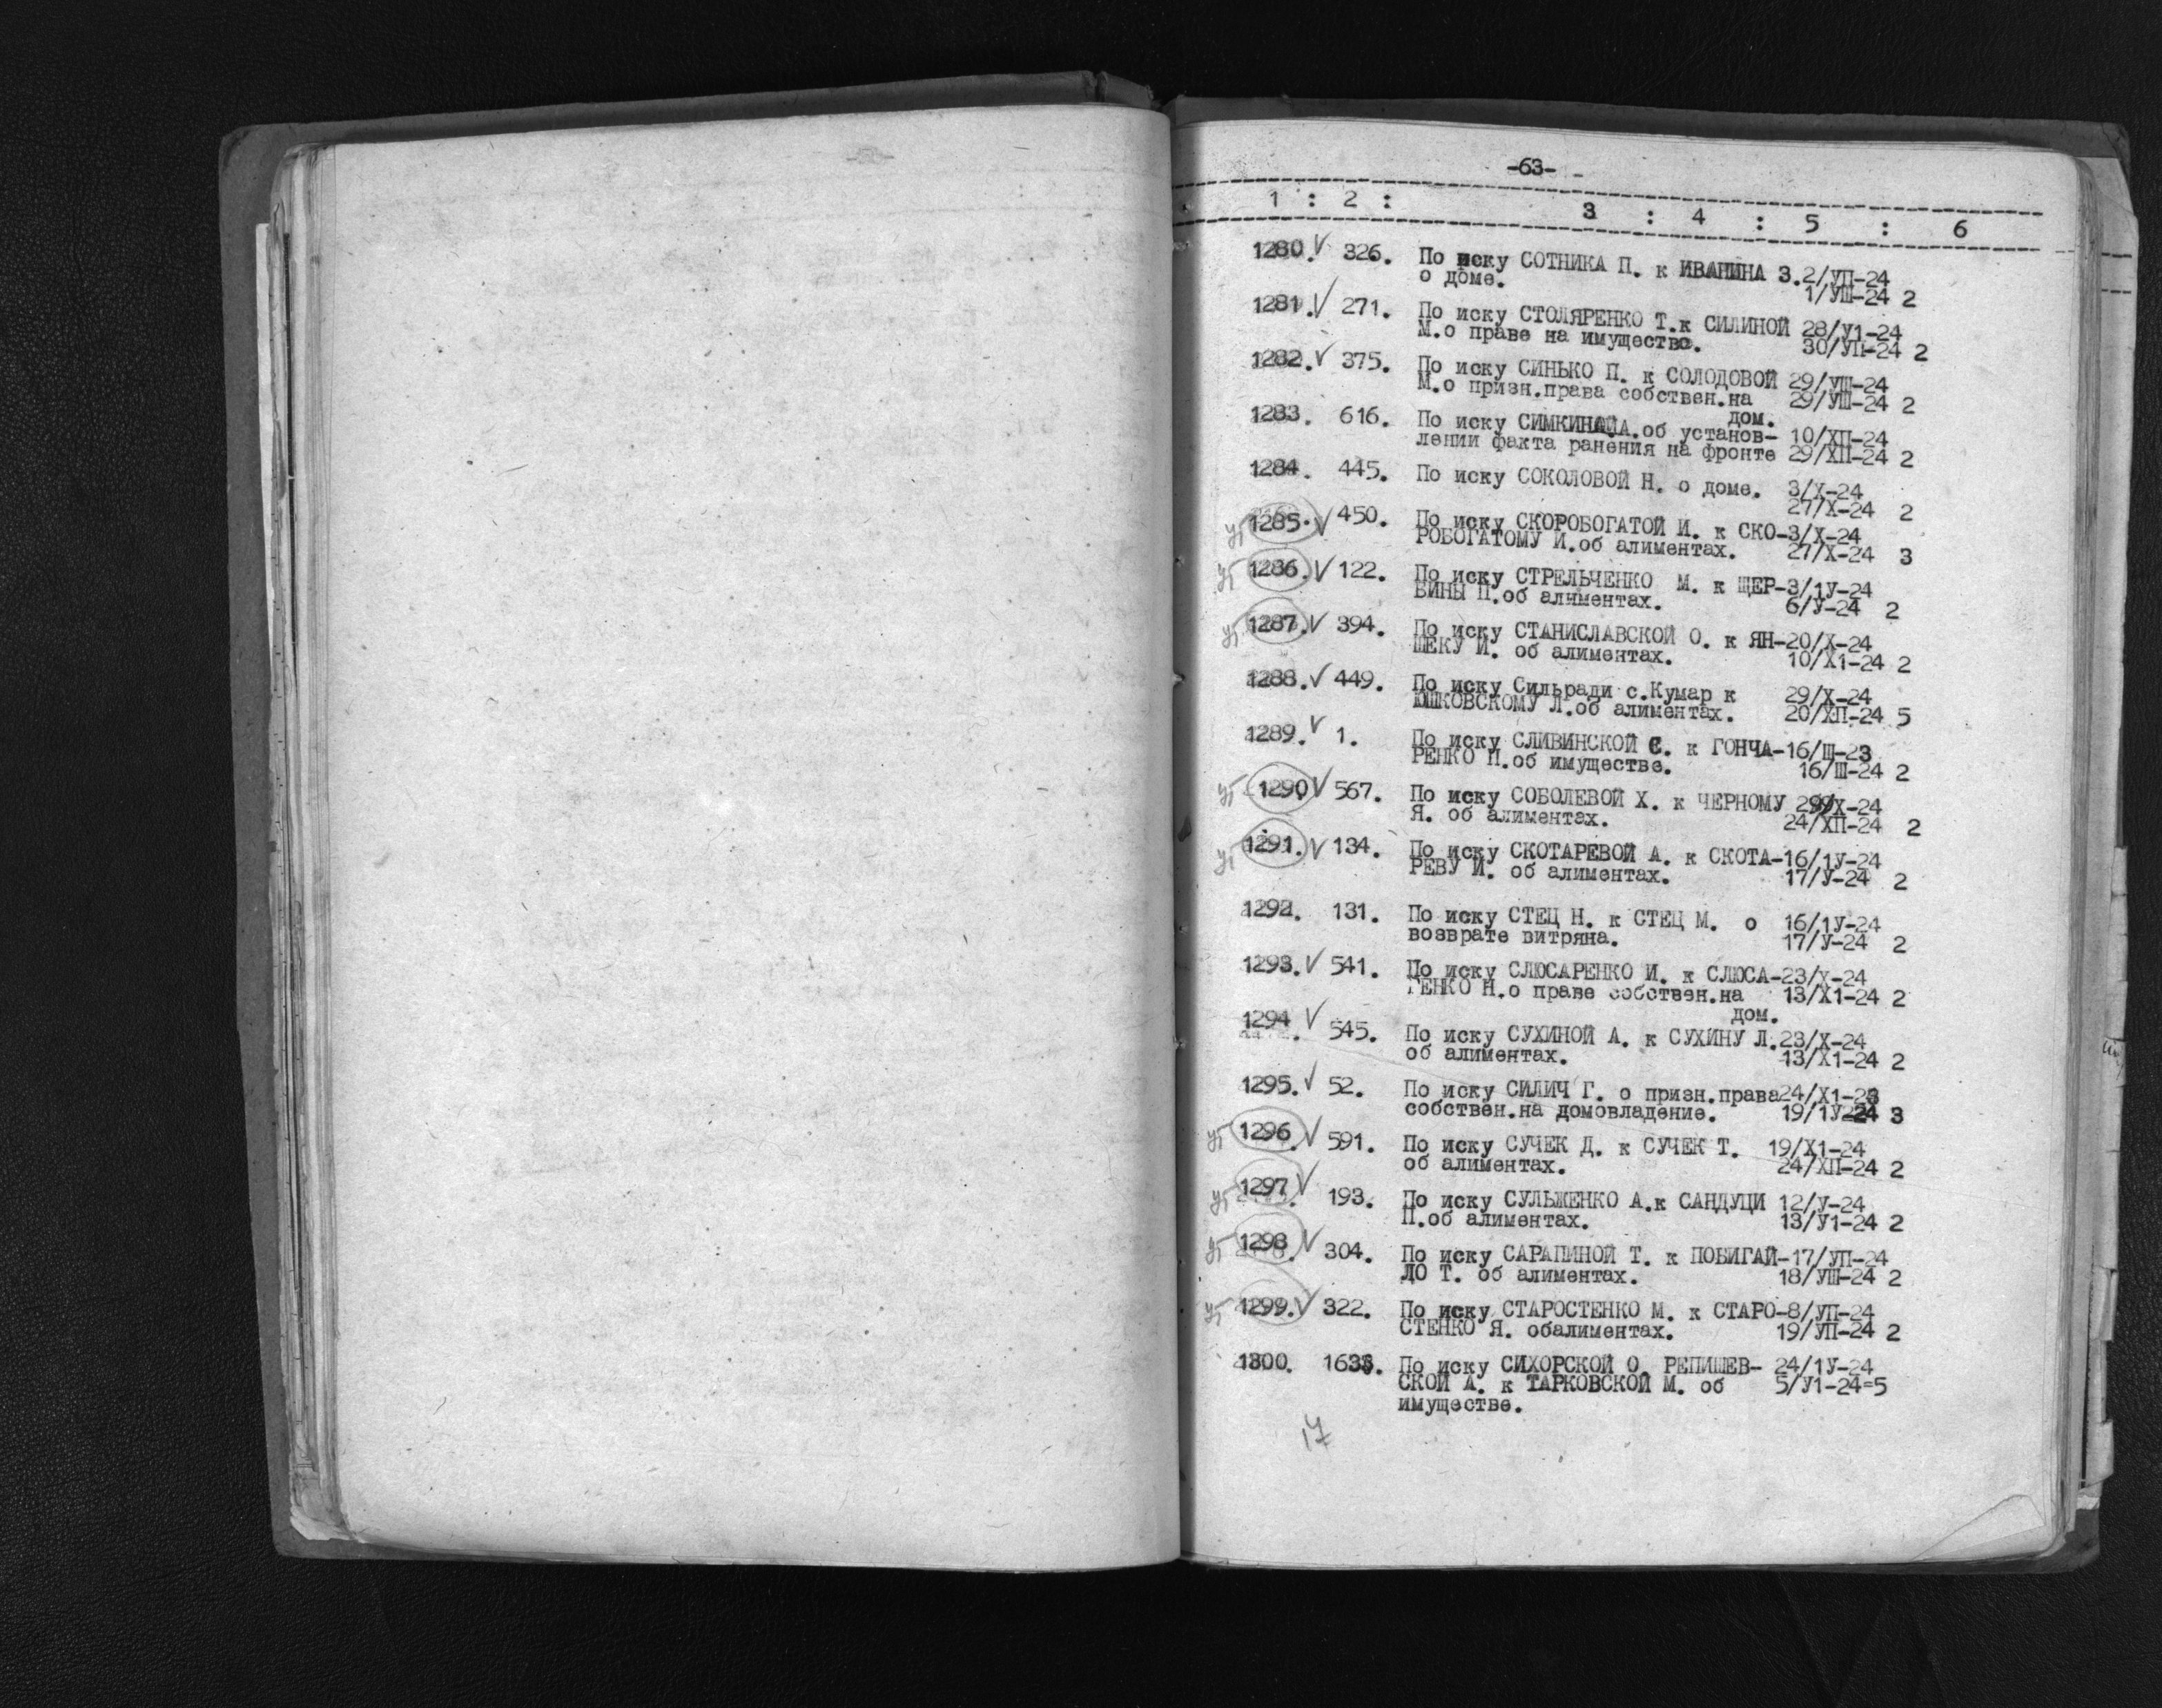 -63-
1 : 2 : 3 : 4 : 5 : 6
1280. V 326. По иску СОТНИКА П. к ИВАНИНА З. 2/УП-24
о доме. 1/УШ-24 2
1281. V 271. По иску СТОЛЯРЕНКО Т.к СИЛИНОЙ 28/У1-24
М.о праве на имущество. 30/УП-24 2
1282. V 375. По иску СИНЬКО П. к СОЛОДОВОЙ 29/УШ-24
М.о призн.права собствен.на 29/УШ-24 2
дом.
1283. 616. По иску СИМКИНОЙ А.об установ- 10/ХП-24
лении факта ранения на фронте 29/ХП-24 2
1284. 445. По иску СОКОЛОВОЙ Н. о доме. 3/Х-24
27/Х-24 2
УТ 1285. V 450. По иску СКОРОБОГАТОЙ И. к СКО-3/Х-24
РОБОГАТОМУ И.об алиментах. 27/Х-24 3
УТ 1286. V 122. По иску СТРЕЛЬЧЕНКО М. к ЩЕР-3/1У-24
БИНЫ П.об алиментах. 6/У-24 2
УТ 1287. V 394. По иску СТАНИСЛАВСКОЙ О. к ЯН-20/Х-24
ШЕКУ И. об алиментах. 10/Х1-24 2
1288. V 449. По иску Сильради с.Кумар к 29/Х-24
ЮШКОВСКОМУ Л.об алиментах. 20/ХП-24 5
1289. V 1. По иску СЛИВИНСКОЙ С. к ГОНЧА-16/Ш-23
РЕНКО П.об имуществе. 16/Ш-24 2
УТ 1290 V 567. По иску СОБОЛЕВОЙ Х. к ЧЕРНОМУ 29/Х-24
Я. об алиментах. 24/ХП-24 2
УТ 1291. V 134. По иску СКОТАРЕВОЙ А. к СКОТА-16/1У-24
РЕВУ И. об алиментах. 17/У-24 2
1292. 131. По иску СТЕЦ Н. к СТЕЦ М. о 16/1У-24
возврате витряна. 17/У-24 2
1293. V 541. По иску СЛЮСАРЕНКО И. к СЛЮСА-23/Х-24
РЕНКО Н.о праве собствен.на 13/Х1-24 2
дом.
1294 V 545. По иску СУХИНОЙ А. к СУХИНУ Л.23/Х-24
об алиментах. 13/Х1-24 2
1295. V 52. По иску СИЛИЧ Г. о призн.права24/Х1-23
собствен.на домовладение. 19/1У-24 3
УТ 1296 V 591. По иску СУЧЕК Д. к СУЧЕК Т. 19/Х1-24
об алиментах. 24/ХП-24 2
УТ 1297 V 193. По иску СУЛЬЖЕНКО А.к САНДУЦИ 12/У-24
П.об алиментах. 13/У1-24 2
УТ 1298 V 304. По иску САРАПИНОЙ Т. к ПОБИГАЙ-17/УП-24
ЛО Т. об алиментах. 18/УШ-24 2
УТ 1299. V 322. По иску СТАРОСТЕНКО М. к СТАРО-8/УП-24
СТЕНКО Я. обалиментах. 19/УП-24 2
1300. По иску СИХОРСКОЙ О. РЕПИШЕВ- 24/1У-24
СКОЙ А. к ТАРКОВСКОЙ М. об 5/У1-24=5
имуществе.
17